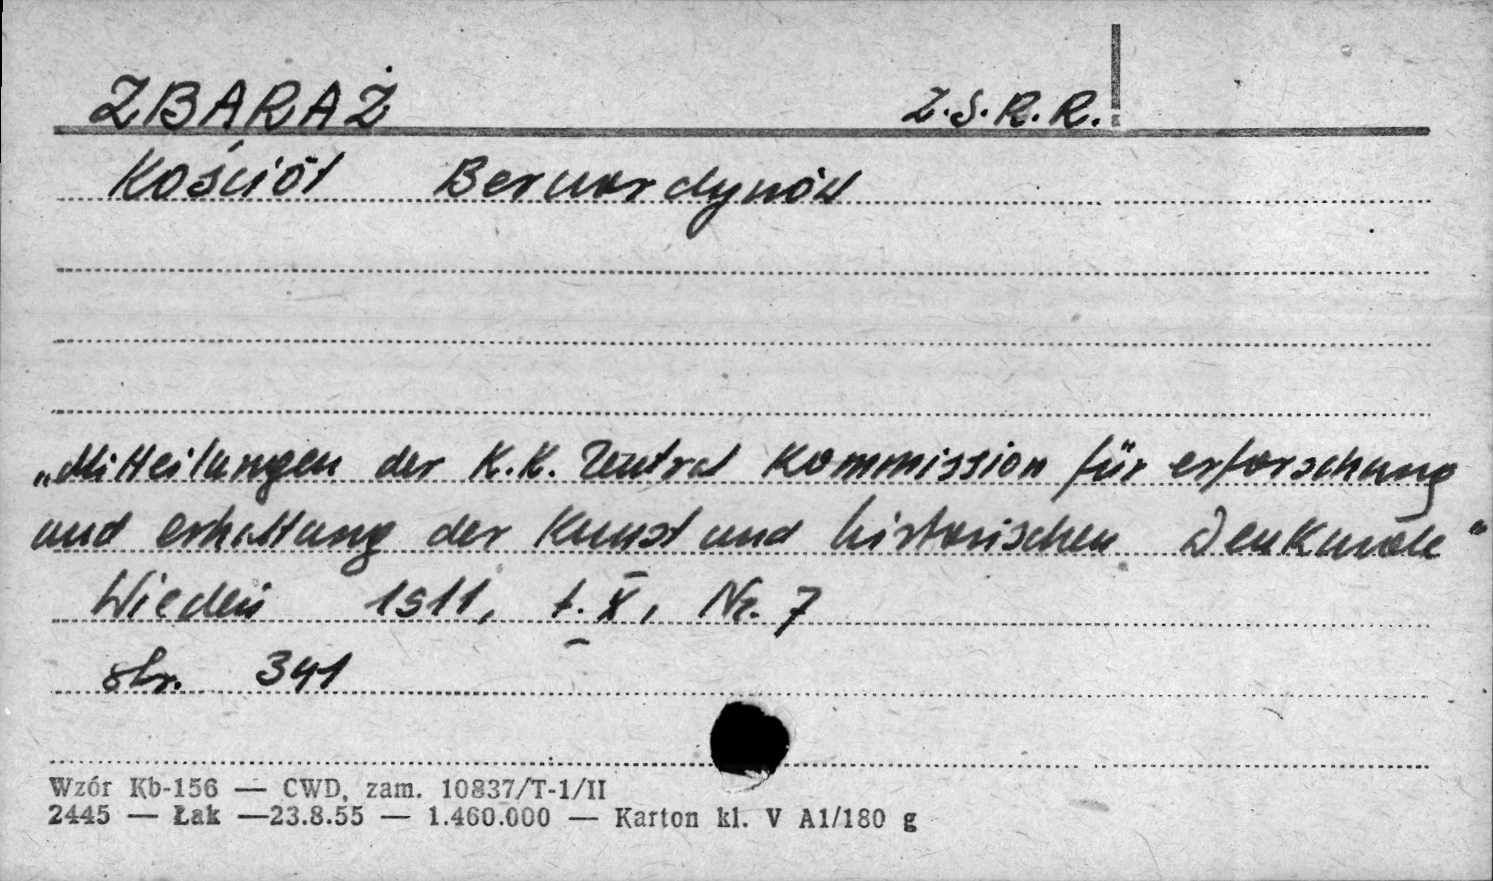 ZBARAŻ Z.S.R.R.
Kościół Bernardynów
„Mitteilungen der K.K. Zentral Kommission für erforschung
und erhaltung der Kunst und historischen Denkmale"
Wiedeń 1911, t. X, Nr. 7
str. 341
Wzór Kb-156 — CWD, zam. 10837/T-1/II
2445 — Łak —23.8.55 — 1.460.000 — Karton kl. V A1/180 g